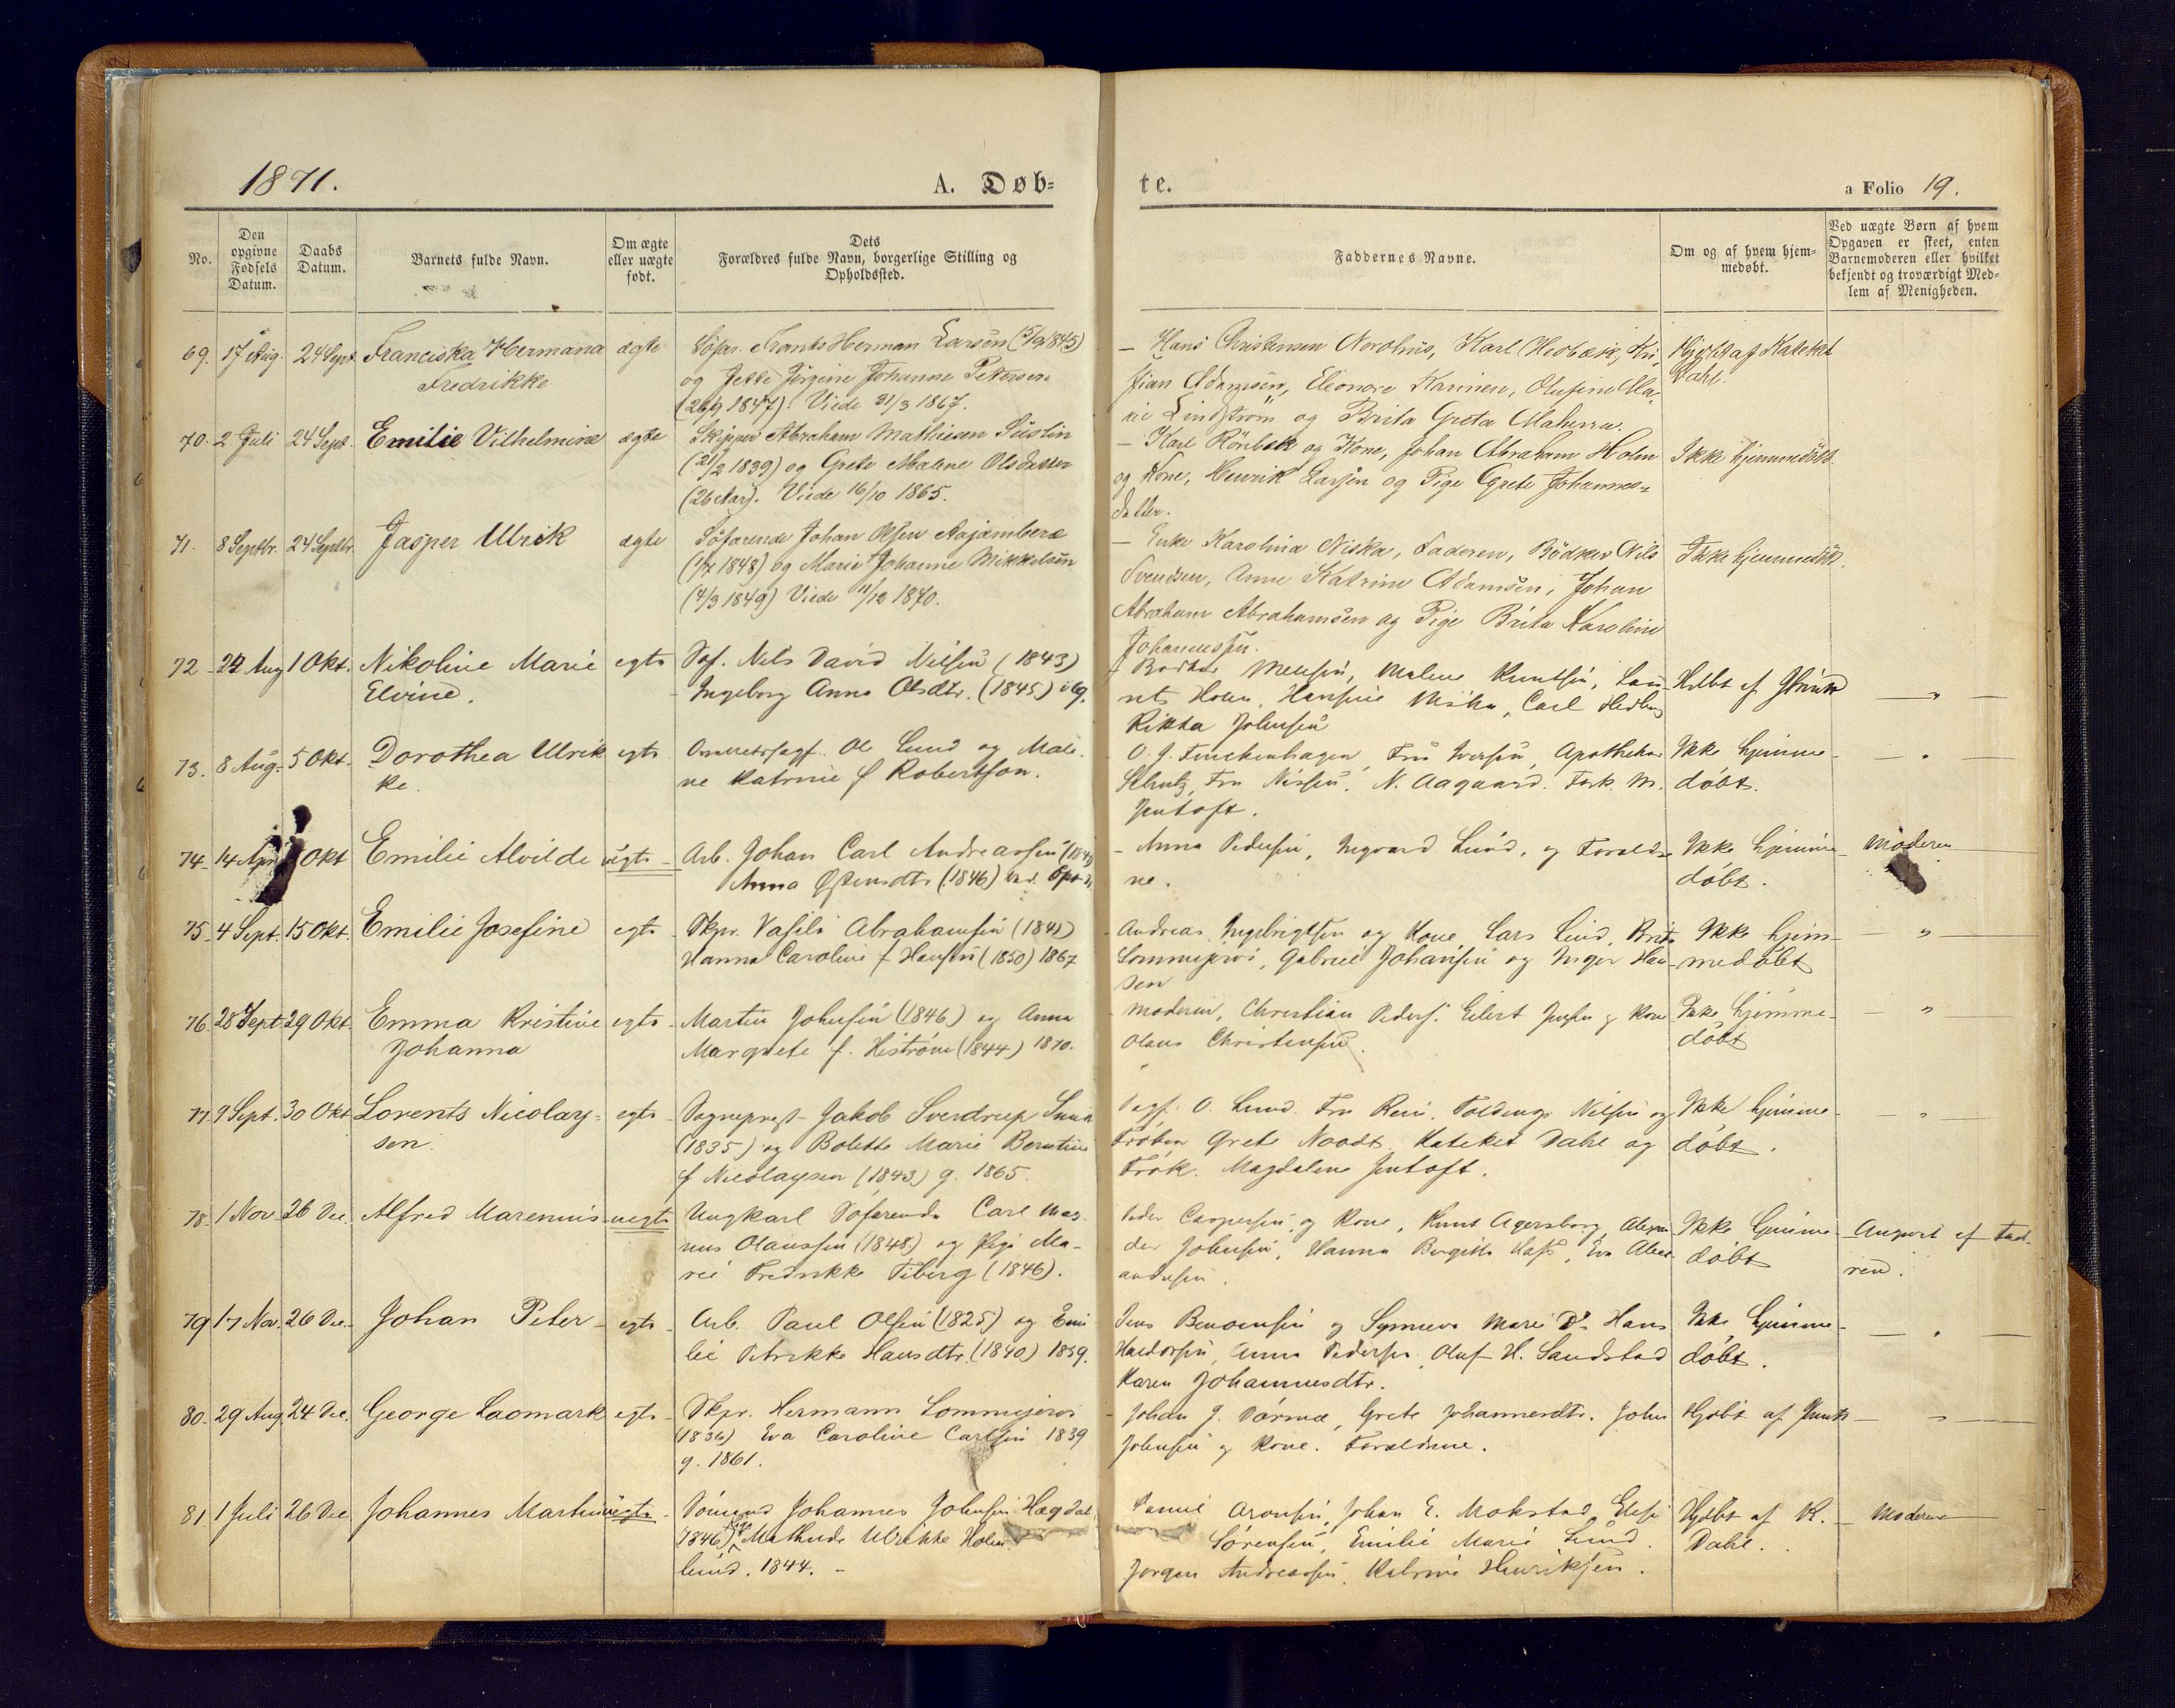 1871.
A. Døb=
te.
a Folio 19.
No.
Den opgivne Fødsels Datum.
Daabs Datum.
Barnets fulde Navn.
Om ægte eller uægte født.
Dets Forældres fulde Navn, borgerlige Stilling og Opholdssted.
Faddernes Navne.
Om og af hvem hjem=
medøbt.
Ved uægte Børn af hvem
Opgaven er skeet, enten
Barnemoderen eller hvilket
bekjendt og troværdigt Med=
lem af Menigheden.
69. 17 Aug. 24 Sept. Franciska Hermana ægte Søfar. Frants Herman Larsen
Fredrikke og Jette Jørgine Johanne Petersen
(1847). Viede 31/3 1867.
– Hans Christensen Nordhus, Karl Hedbæk, Kri
stian Adamsen, Eleonore Karinen, Olufine Ma-
rie Lindström og Brita Greta Maherra.
Hjdøbt af Kateket
Dahl.
70. 2 Juli 24 Sept. Emilie Vilhelmine ægte Skipper Abraham Mathiesen Suslin
(21/2 1839) og Grete Malene Olsdatter
(26 Aar). Viede 16/10 1865.
– Karl Rönbæk og Kone, Johan Abraham Holm
og Kone, Henrik Larsen og Pige Grete Johannes=
datter.
Ikke hjemmedöbt.
71. 8 Septbr. 24 Septbr. Jasper Ulrik ægte Söfarende Johan Olsen
1848) og Marie Johanne Mikkelsen
(4/3 1849) Viede 11/12 1870.
– Enke Karolina Niska, Faderen, Bödker Nils
Svendsen, Anne Katrine Adamsen, Johan
Abraham Abrahamsen og Pige Brita Karoline
Johannessen.
Ikke hjemmedöbt.
72 22 Aug 1 Okt. Nikoline Marie egte Søf. Nels David Nilsen (1843)
Elvine. Ingeborg Anna Olsdtr. (1845)
Malene Knutsen,
Holm, Hansine Niska, Carl
Rikka Johnsen
Hdbt af
73. 8 Aug. 5 Okt. Dorothea Ulrik egte Ole Lund og Male-
ke. ne Katrine f Robertson.
O. J. Finckenhagen, Fru Iversen, Apotheker
Schutz, Fru Nissen, N. Aagaard. Frk. M.
Jentoft.
Ikke hjemme-
døbt.
74 14 Apr Okt Emilie Alvilde uegte Arb. Johan Carl Andreassen
Anna Østensdtr (1846)
– Anna Pedersen, Ingvard Lund, og Forældre
ne.
Ikke hjemme-
døbt.
Moderen
75 4 Sept. 15 Okt. Emilie Josefine egte Skpr. Vasili Abrahamsen
Hanna Caroline f Hansen (1850) 1867
Andreas Ingebrigtsen og Kone, Lars Lind, Brita
Lommejervi, Gabriel Johansen og Inger Han-
sen
Ikke hjem-
medøbt
76 28 Sept 29 Okt. Emma Kristine egte Martin Johnsen (1846) og Anna
Johanna Margrete f. Histrøm (1844) 1870.
Moderen, Christian Peders. Eilert Jensen og Kone
Olaus Christensen.
Ikke hjemme-
døbt
77 9 Sept. 30 Okt Lorents Nicolay- egte Sogneprest Jakob Sverdrup Smitt
sen. (1835) og Bolette Marie Berntine
f Nicolaysen (1843) g. 1865.
O. Lund. Fru Rein. Foldmg. Nilsen og
Frøken Grete Noodt, Kateket Dahl og
Frøk. Magdalene Jentoft.
Ikke hjemme-
døbt.
78 1 Nov 26 Dec. Alfred Marenius uegte Ungkarl Søfarende Carl Mag-
nus Olaussen (1848) og Pige Ma-
rie Fredrikke Fiberg (1846).
Peder Caspersen og Kone, Knut Agersborg, Alexan
der Johnsen, Hanna Birgitte Hass, Eva Alex-
andersen.
Ikke hjemme-
døbt
Angivet af Fad-
ren.
79 17 Nov. 26 Dec. Johan Peter egte Arb. Paul Olsen (1825) og Emi
lie Petrikke Hansdtr. (1840) 1859.
Jens Benonisen og Synneva Marie Do. Hans
Haldorsen, Anna Pedersen. Oluf H. Sandstad
Karen Johannesdtr.
Ikke hjemme-
døbt.
80. 29 Aug. 24 Dec. George Laomark egte Skpr. Hermann Lommejervi
(1836) Eva Caroline Carlsen 1839
g. 1861.
Johan J. Grete Johannesdtr. John
Johnsen og Kone. Forældrene.
Hjdbt af
81. 1 Juli 26 Dec Johannes Martin uegte Johannes Johnsen Hægdal
1846) Pige Mathilde Ulrikke Holm-
lund. 1844.
Daniel Aronsen, Johan E. Mokstad, Elise
Sørensen, Emilie Marie Lund.
Jørgen Andreassen, Katrine Henriksen.
Hjdbt af K.
Dahl.
Moderen